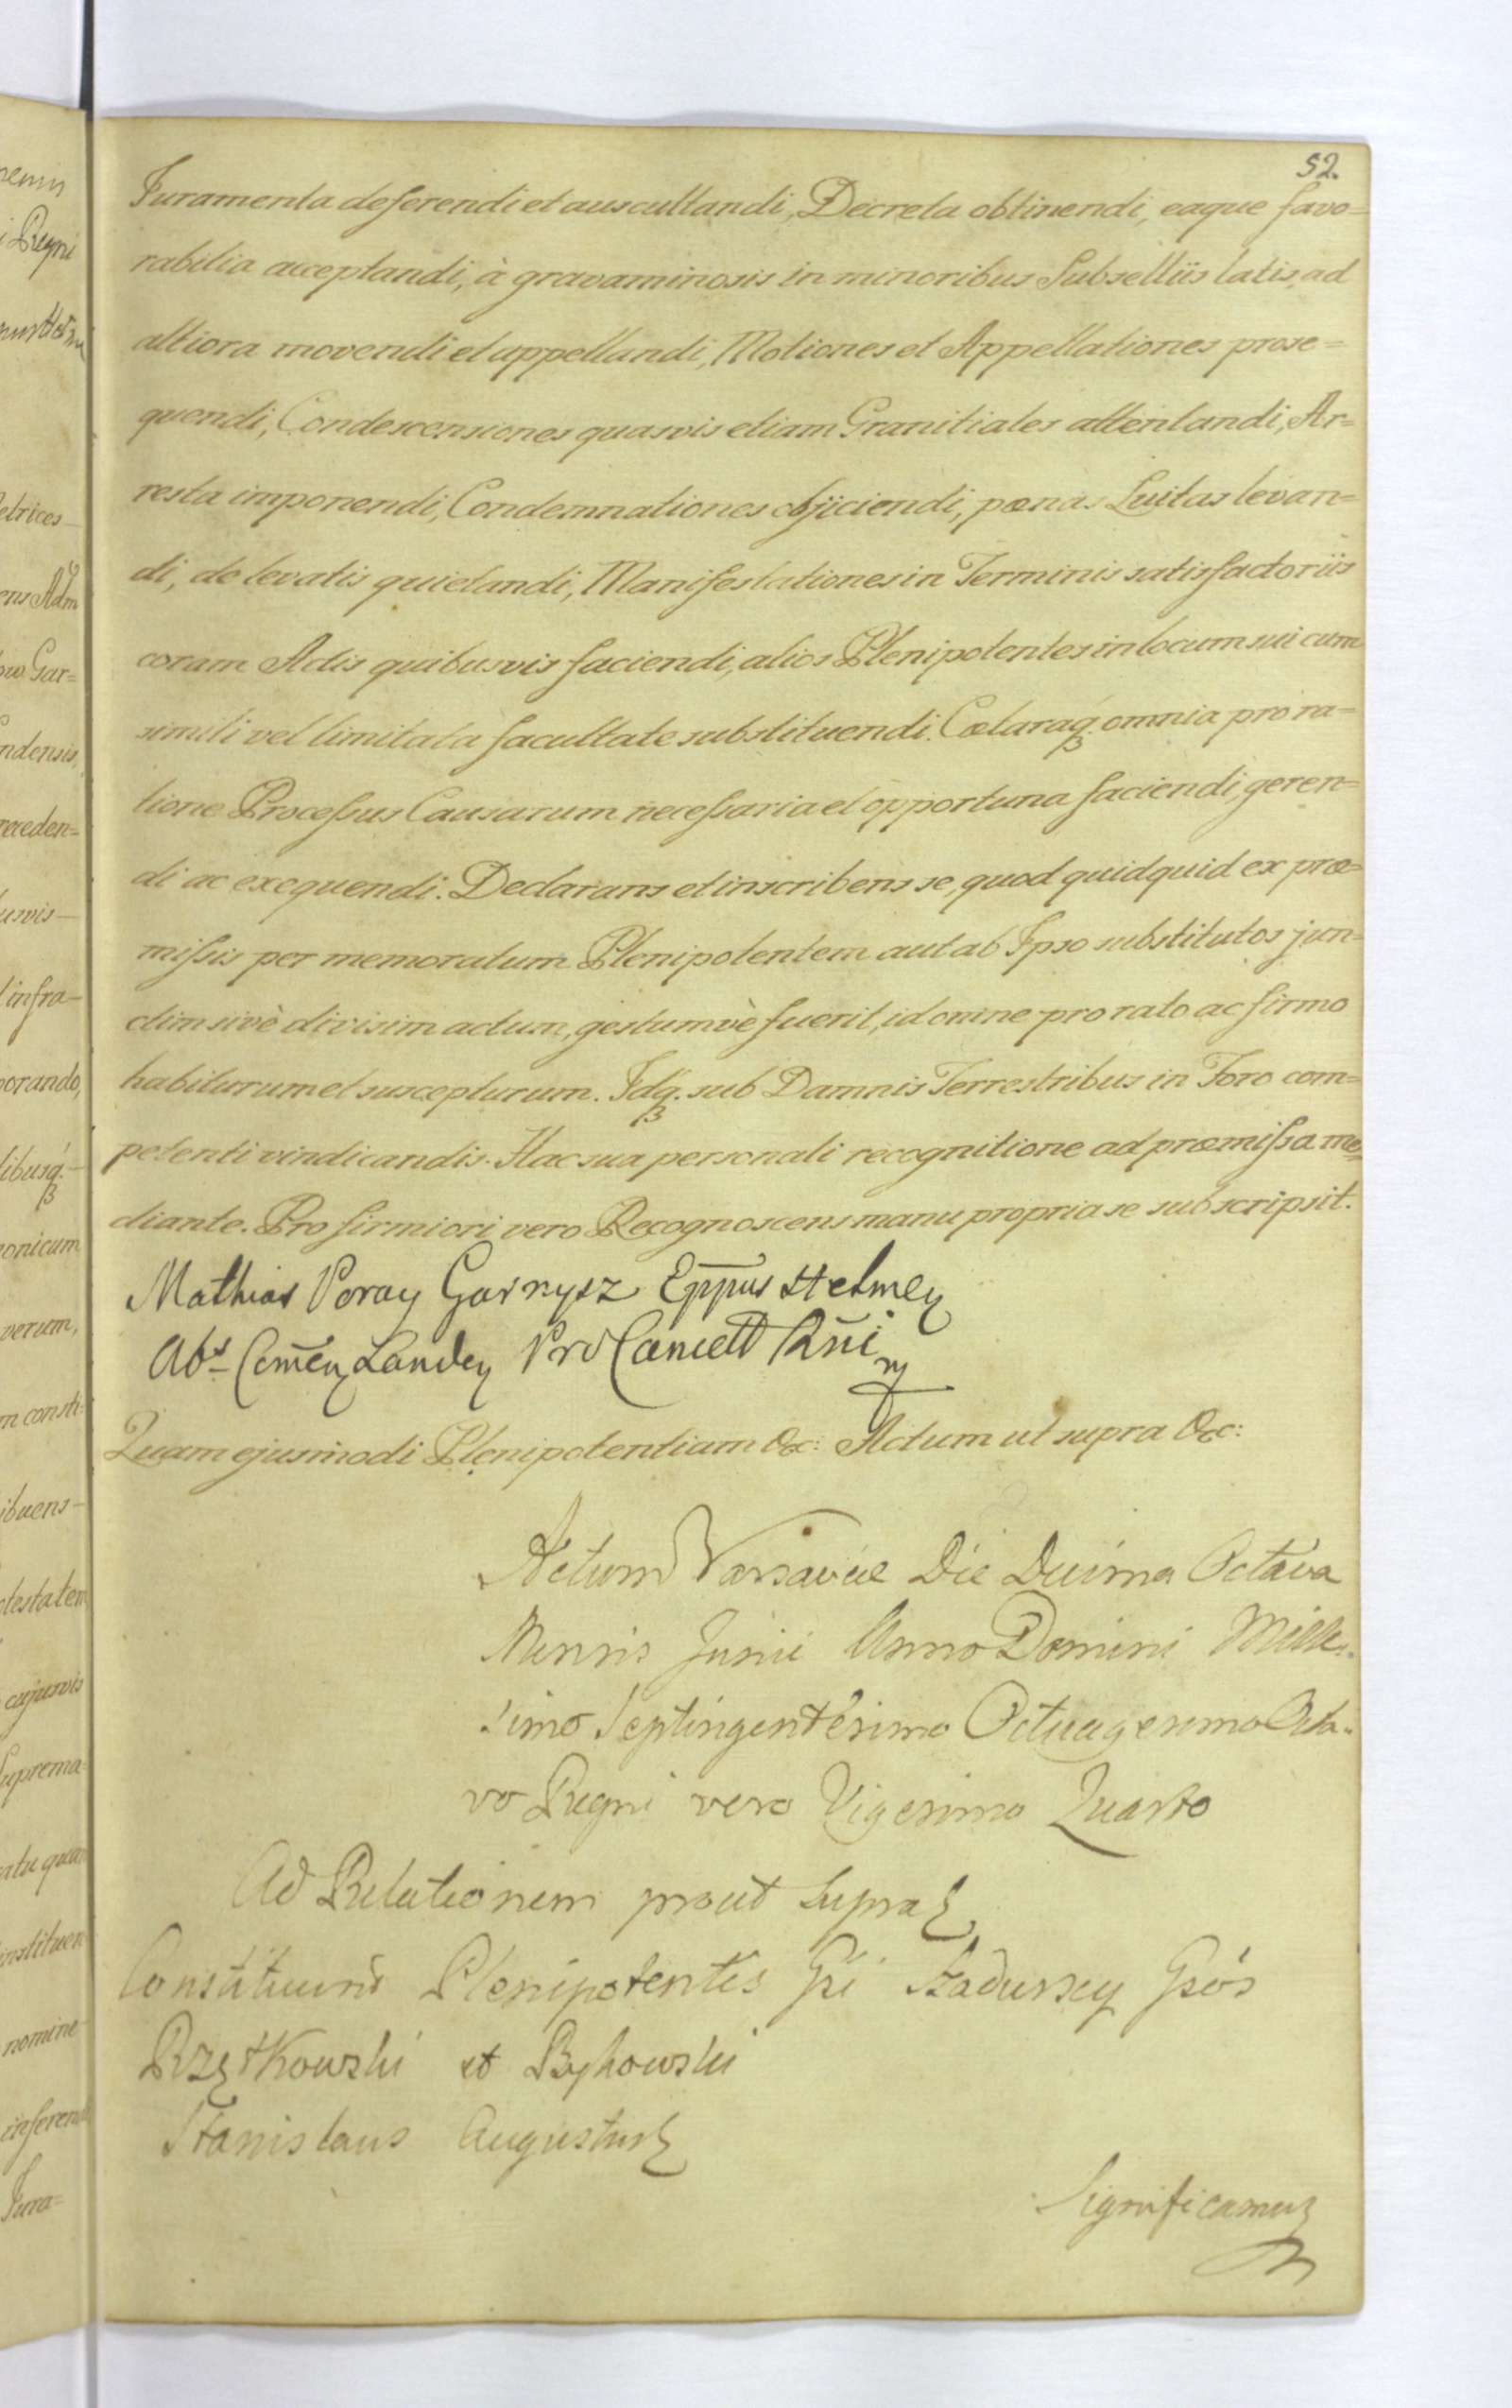 52.
Juramenta deferendi et auscultandi, Decreta obtinendi, eaque favo=
rabilia acceptandi, à gravaminosis in minoribus Subselliis latis, ad
altiora movendi et appellandi, Motiones et Appellationes prose=
quendi, Condescensiones quasvis etiam Granitiales attentandi, Ar=
resta imponendi, Condemnationes objiciendi, pœnas Luitas levan=
di, de levatis quietandi, Manifestationes in Terminis satisfactoriis
coram Actis quibusvis faciendi, alios Plenipotentes in locum sui cum
simili vel limitata facultate substituendi. Cætaraq. omnia pro ra=
tione Processus Causarum necessaria et opportuna faciendi, geren=
di ac exequendi. Declarans et inscribens se, quod quidquid ex præ=
missis per memoratum Plenipotentem aut ab Ipso substitutos jun=
ctim sivè divisim actum, gestumvè fuerit, id omne pro rato ac firmo
habiturum et suscepturum. Idq. sub Damnis Terrestribus in Foro com=
petenti vindicandis. Hac sua personali recognitione ad præmissa me=
diante. Pro firmiori vero Recognoscens manu propria se subscripsit.
Mathias Poray Garnysz Eppus Helmen
Abs Comen Landen Pro Cancell Rñi
Quam ejusmodi Plenipotentiam &c: Actum ut supra &c:
Actum Varsaviæ Die Decima Octava
Mensis Junii Anno Domini Mille-
simo Septingentesimo Octuagesimo Octa-
vo Regni vero Vigesimo Quarto
Ad Relationem prout supra
Plenipotentis Gsi Szadurscy Gsos
et Bykowski
Stanislaus Augustus
Significamus